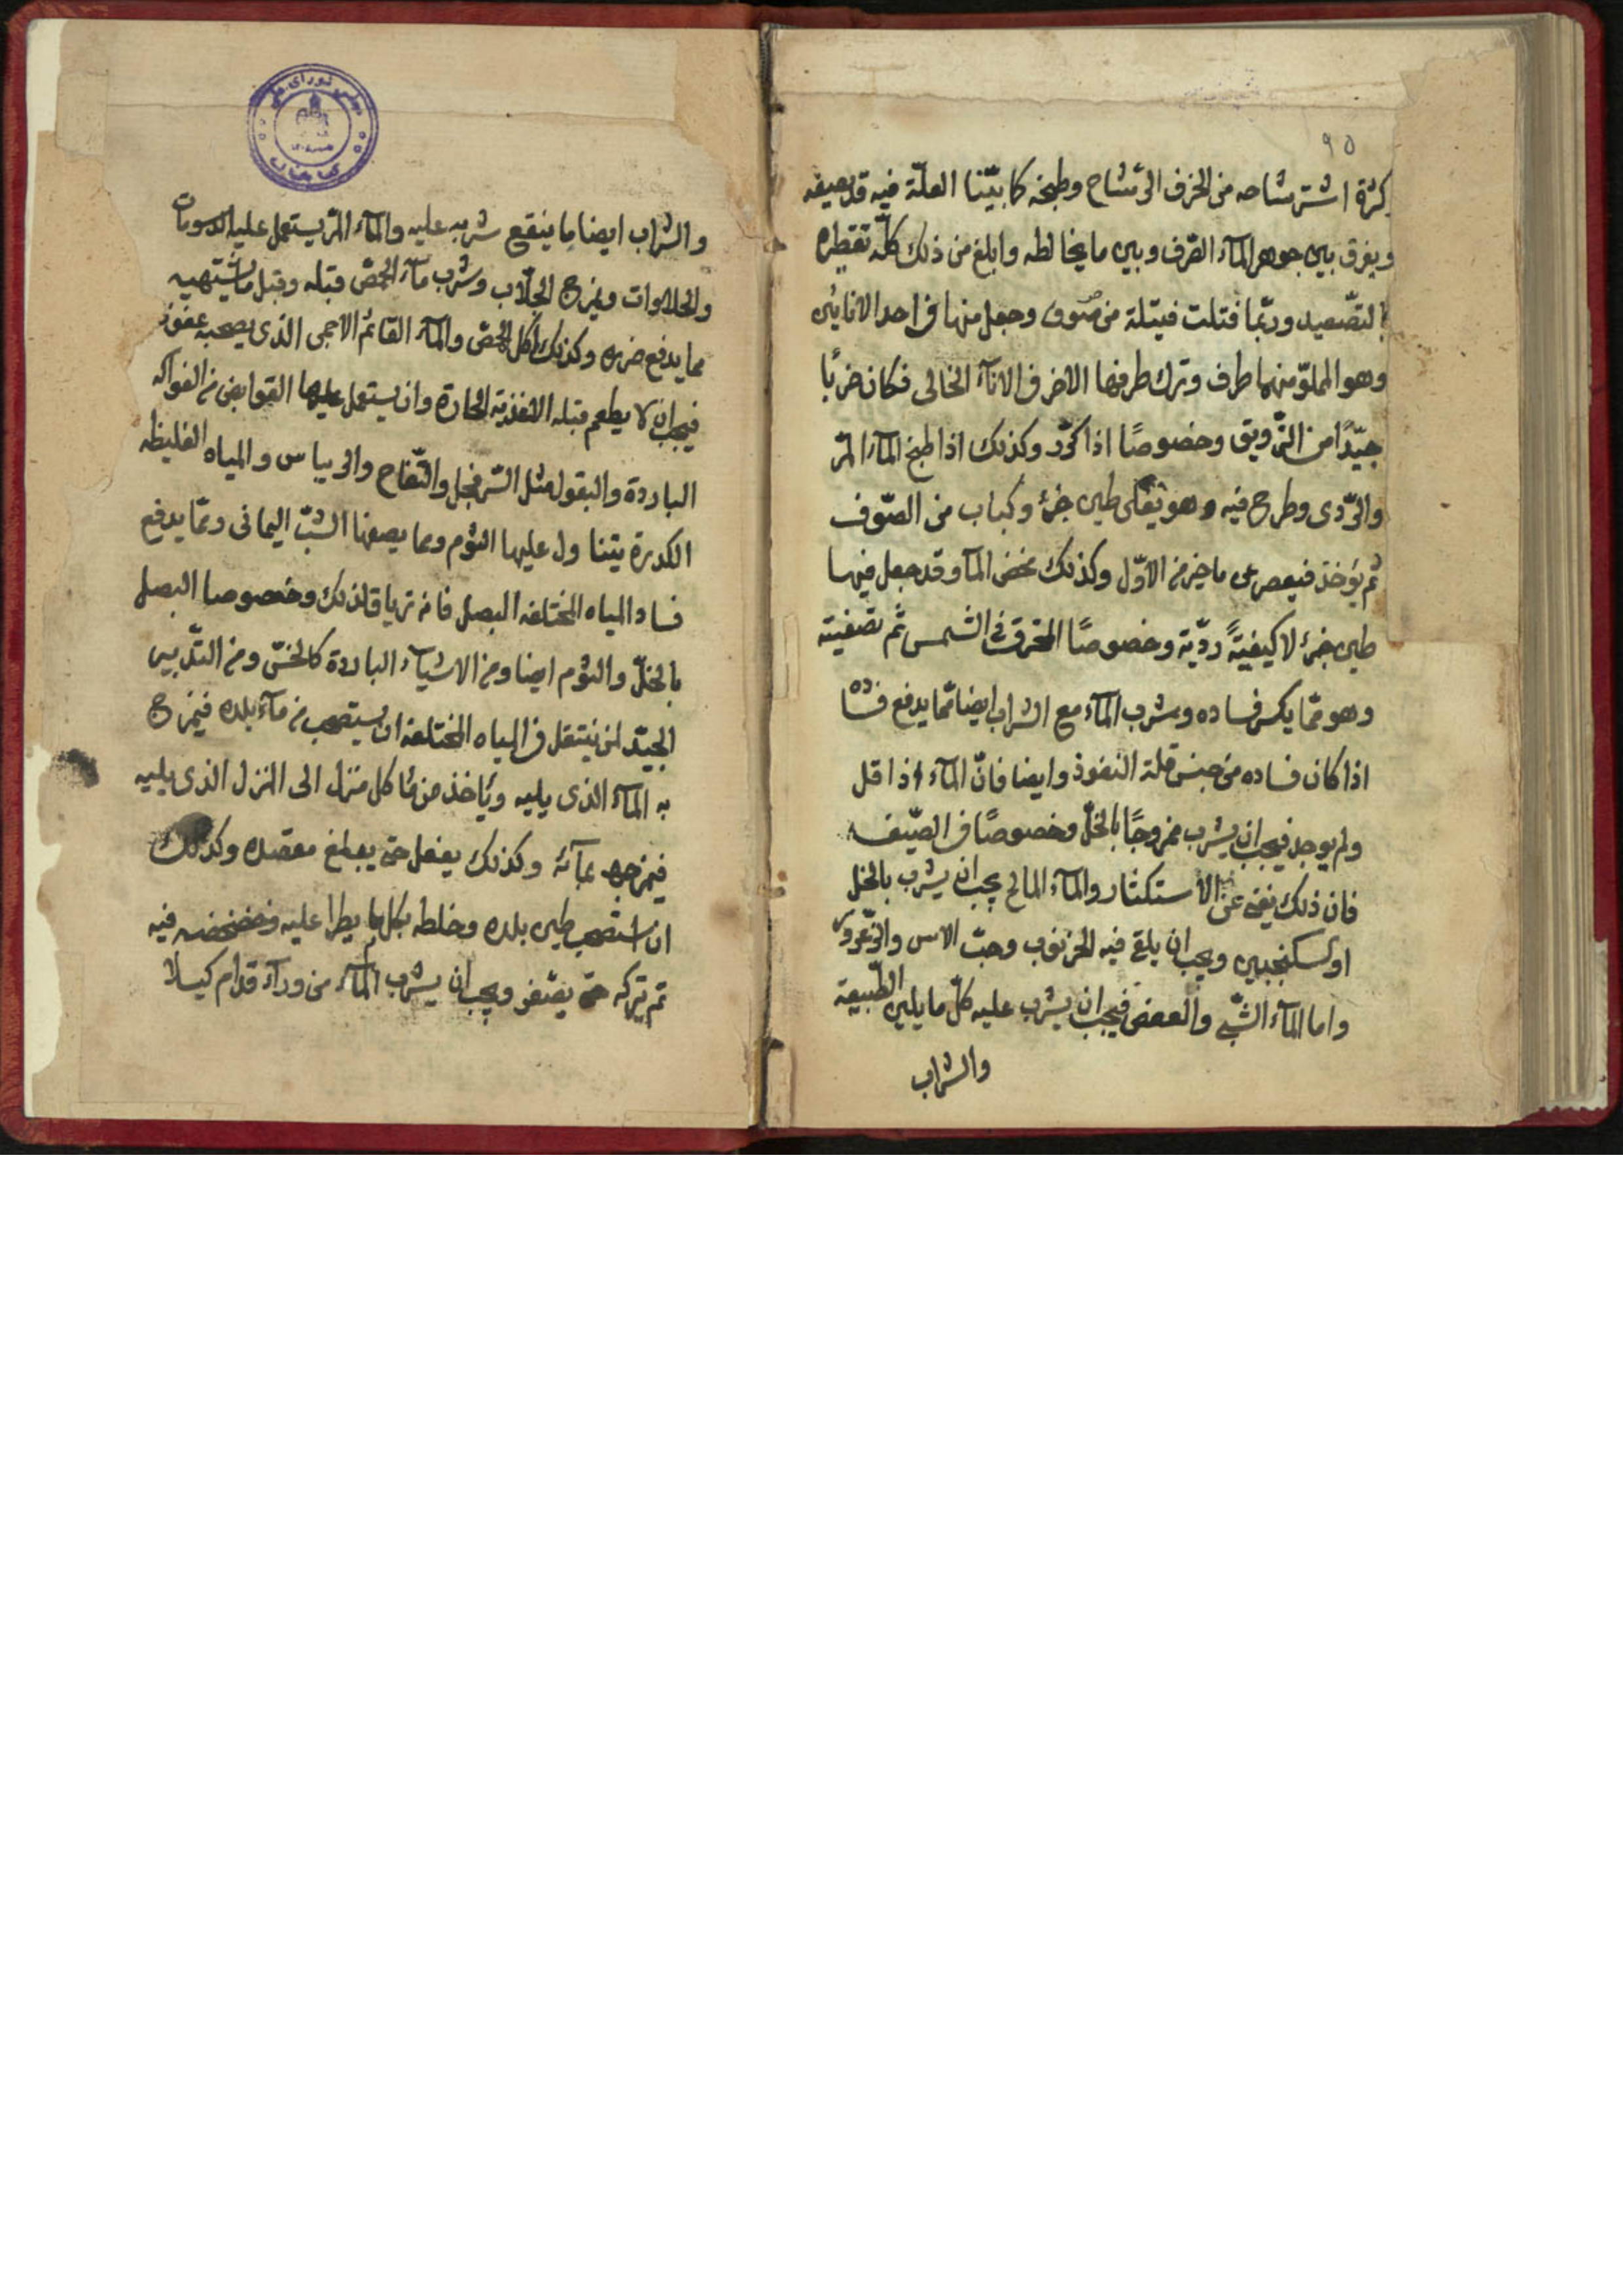 ٩٥
كثرة استرشاحه من الخزف الى شاح وطبخه كما بيّنا العلّة فيه قد يصفيه
ويفرق بين جوهر المآء الصّرف وبين ما يخالطه وابلغ من ذلك كلّه تقطيره
بالتصعيد وربّما فتلت فتيلة من صوف وجعل منها في احد الانائين
وهو المملوّ منهما طرف وترك طرفها الاخر في الانآء الخالى فكان ضربًا
جيّدًا من الترويق وخصوصًا اذا كرّر وكذلك اذا طبخ المآء المرّ
والردى وطرح فيه وهو يغلى طين حرّ وكباب من الصّوف
ثم يؤخذ فيعصر عن ما خير من الاوّل وكذلك مخض المآء وقد جعل فيها
طين حرّ لا كيفيّةً رديّة وخصوصًا المحرق فى الشمس ثم تصفيته
وهو ممّا يكسر فساده وشرب المآء مع الشراب ايضا ممّا يدفع فساده
اذا كان فساده من جنس قلة النفوذ وايضا فانّ المآء اذا قل
ولم يوجد فيجب ان يشرب ممزوجًا بالخلّ وخصوصًا فى الصّيف
فان ذلك يغنى عن الاستكثار والمآء المالح يجب ان يشرب بالخل
او سكنجبين ويجب ان يلقى فيه الخرنوب وحبّ الاس والزّعرور
واما المآء الشبّى والعفص فيجب ان يشرب عليه كلّ ما يلين الطّبيعة
والشراب
والشراب ايضا ما ينفع شربه عليه والمآء المرّ يستعمل عليه الدسومات
والحلاوات ويمزج الجلّاب وشرب مآء الحمّص قبله وقبل ما يشبهه
مما يدفع ضرره وكذلك اكل الحمّص والمآء القائم الاجمى الذى يصحبه عفونة
فيجب ان لا يطعم قبله الاغذية الحارة وان يستعمل عليها القوابض من الفواكه
الباردة والبقول مثل السّفرجل والتّفاح والريباس والمياه الغليظه
الكدرة يتناول عليها الثوم ومما يصفيها الشبّ اليمانى وممّا يدفع
فساد المياه المختلفه البصل فانه ترياق لذلك وخصوصا البصل
بالخلّ والثوم ايضا ومن الاشيآء الباردة كالخسّ ومن التدبير
الجيّد لمن ينتقل فى المياه المختلفة ان يستصحب من مآء بلده فيمزج
به المآء الذى يليه وياخذ من مآء كل منزل الى المنزل الذى يليه
فيمزجه بمآئه وكذلك يفعل حتى يبلغ مقصده وكذلك
ان استصحب طين بلده وخلطه بكل ما يطرا عليه وخضخضه فيه
ثم يتركه حتى يصفو ويجب ان يشرب المآء من ورآء فدام كيلا